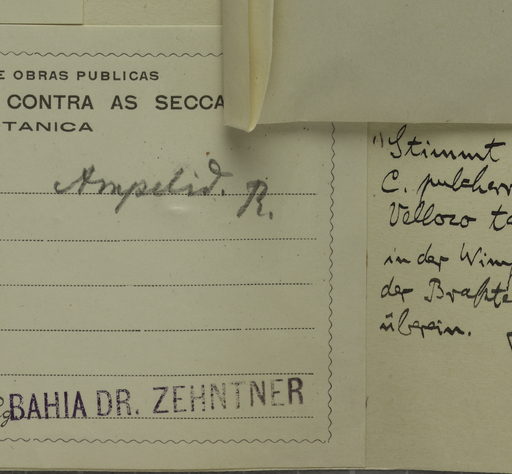 E OBRAS PUBLICAS
CONTRA AS SECCA
TANICA
Ampelid. R.
BAHIA DR. ZEHNTNER
1) Stimmt
C. pulcherr
Vellozo ta
in der Wimp
der Brakte
überein.